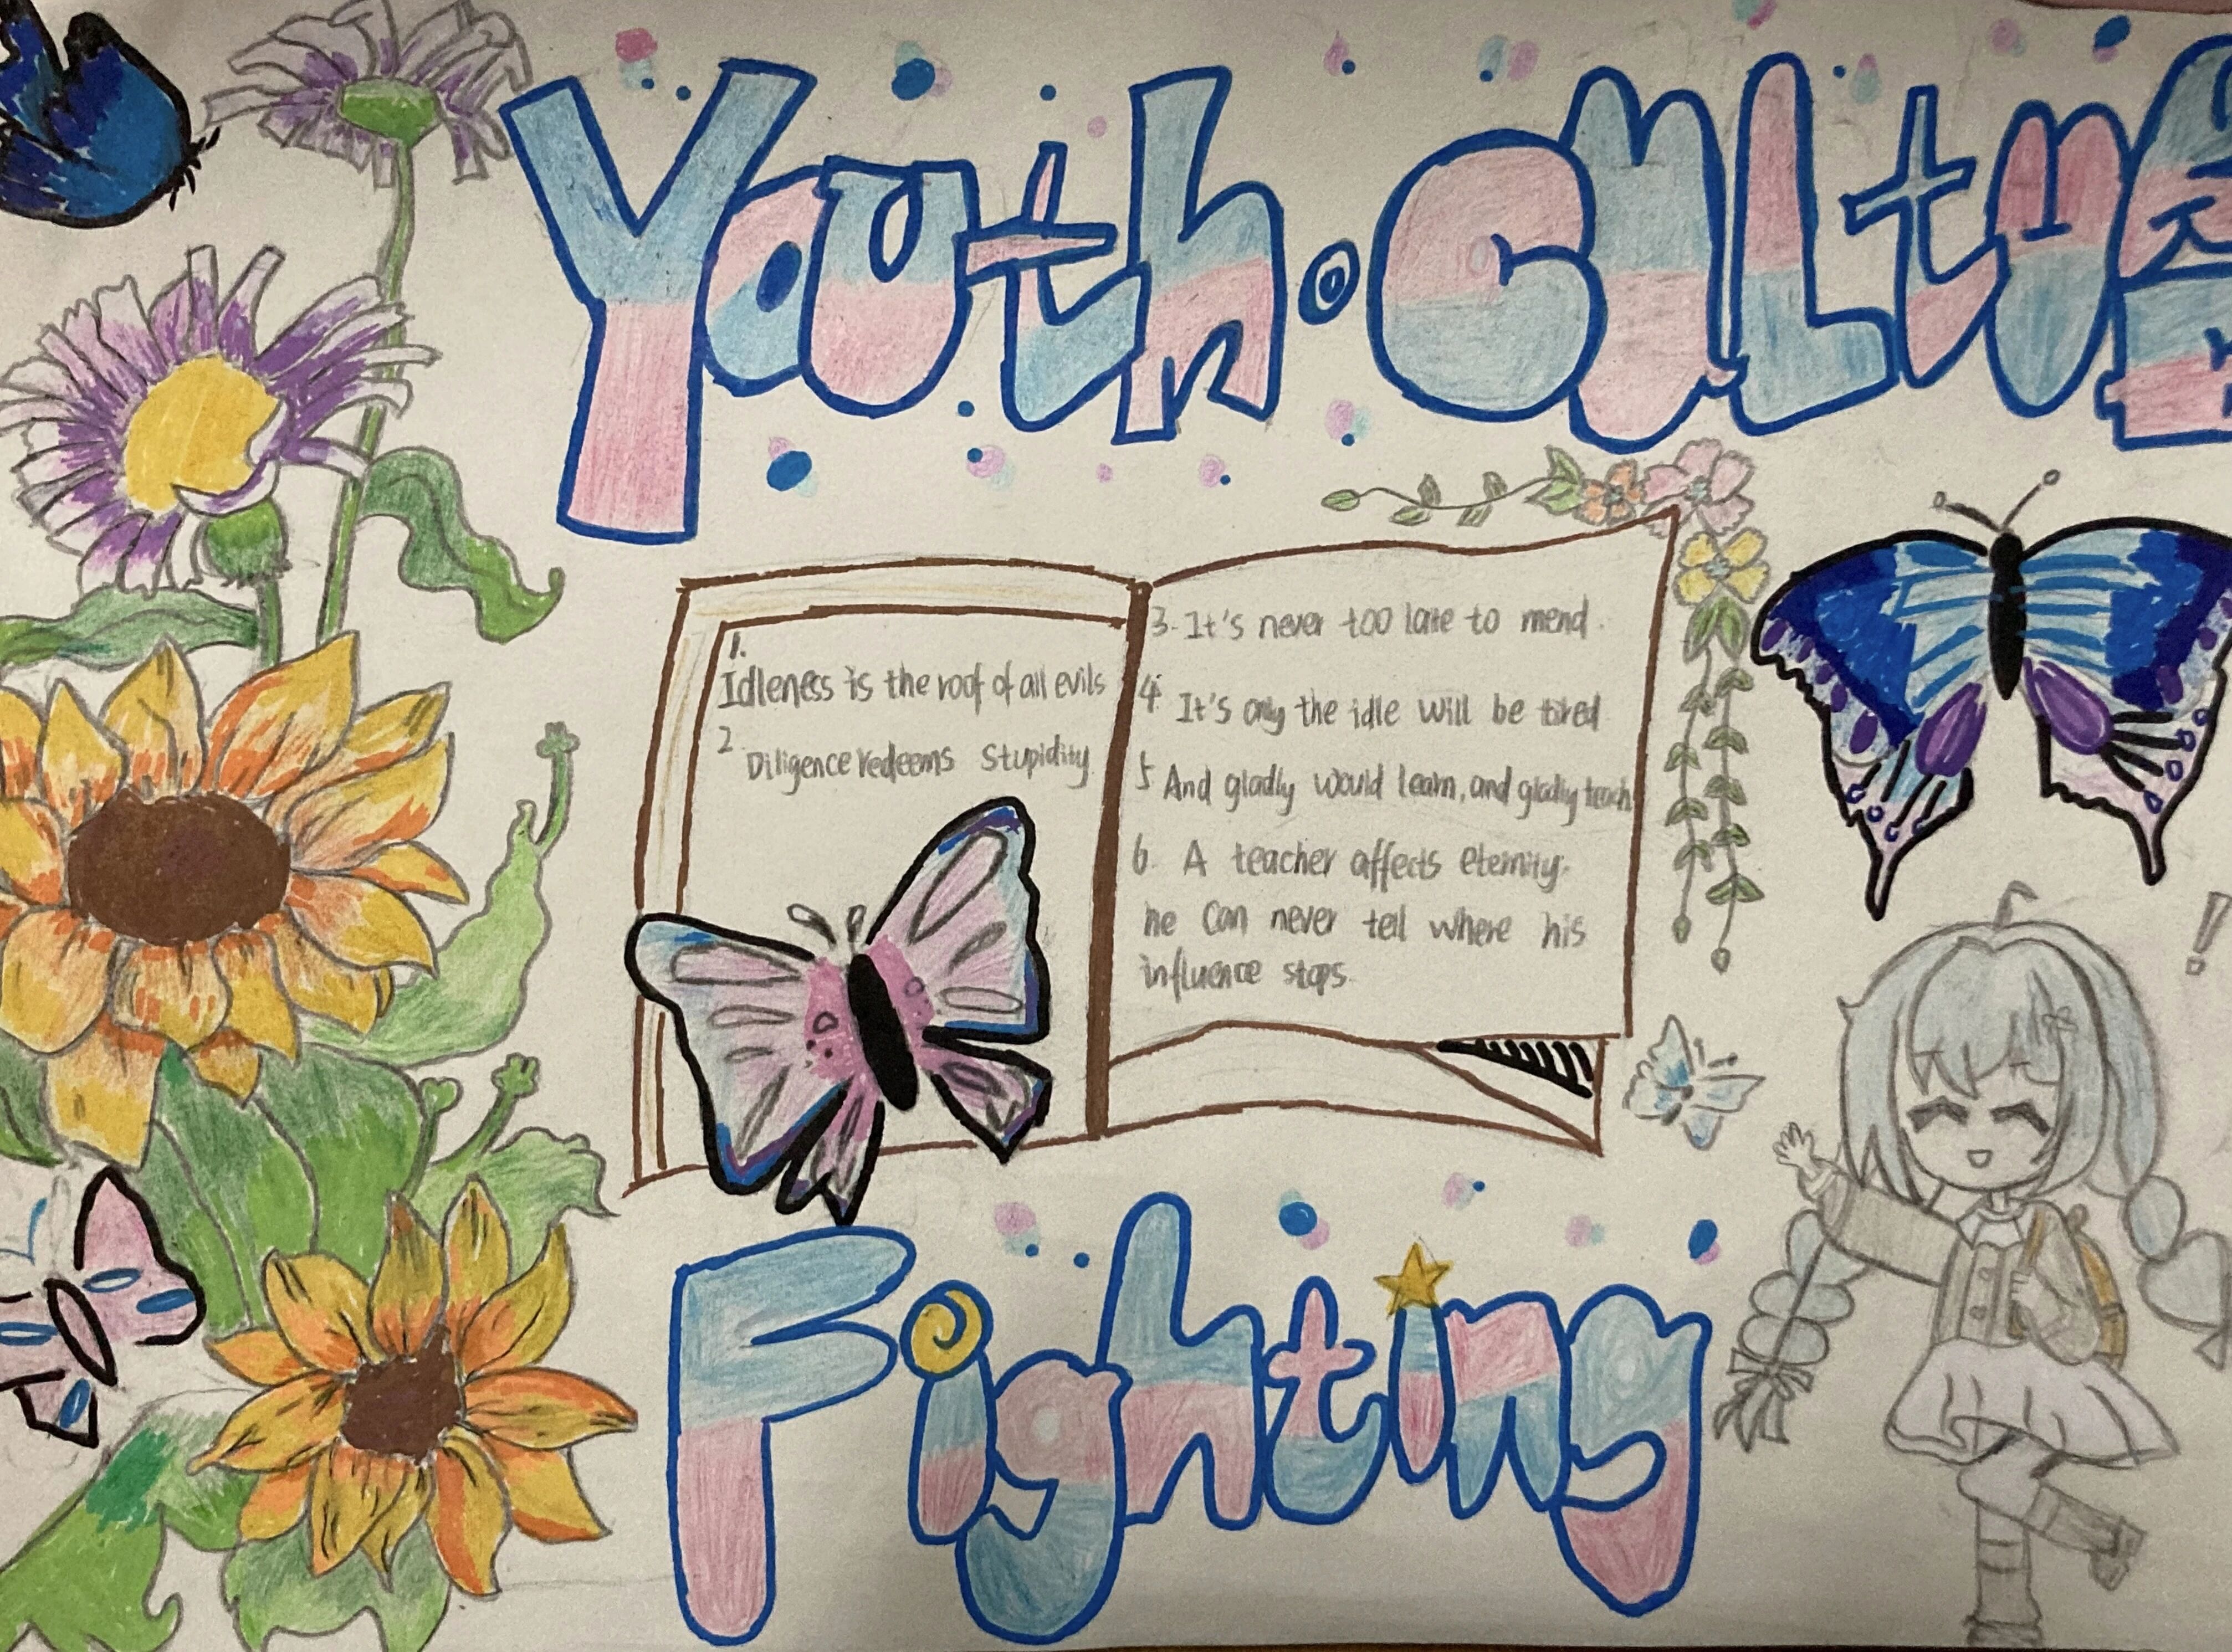 Youth · Cultu
1.
Idleness is the root of all evils
2.
Diligence redeems stupidity
3. It's never too late to mend.
4. It's only the idle will be tired
5 And gladly would learn, and gladly teach
6. A teacher affects eternity.
he can never tell where his
influence stops.
!
Fighting